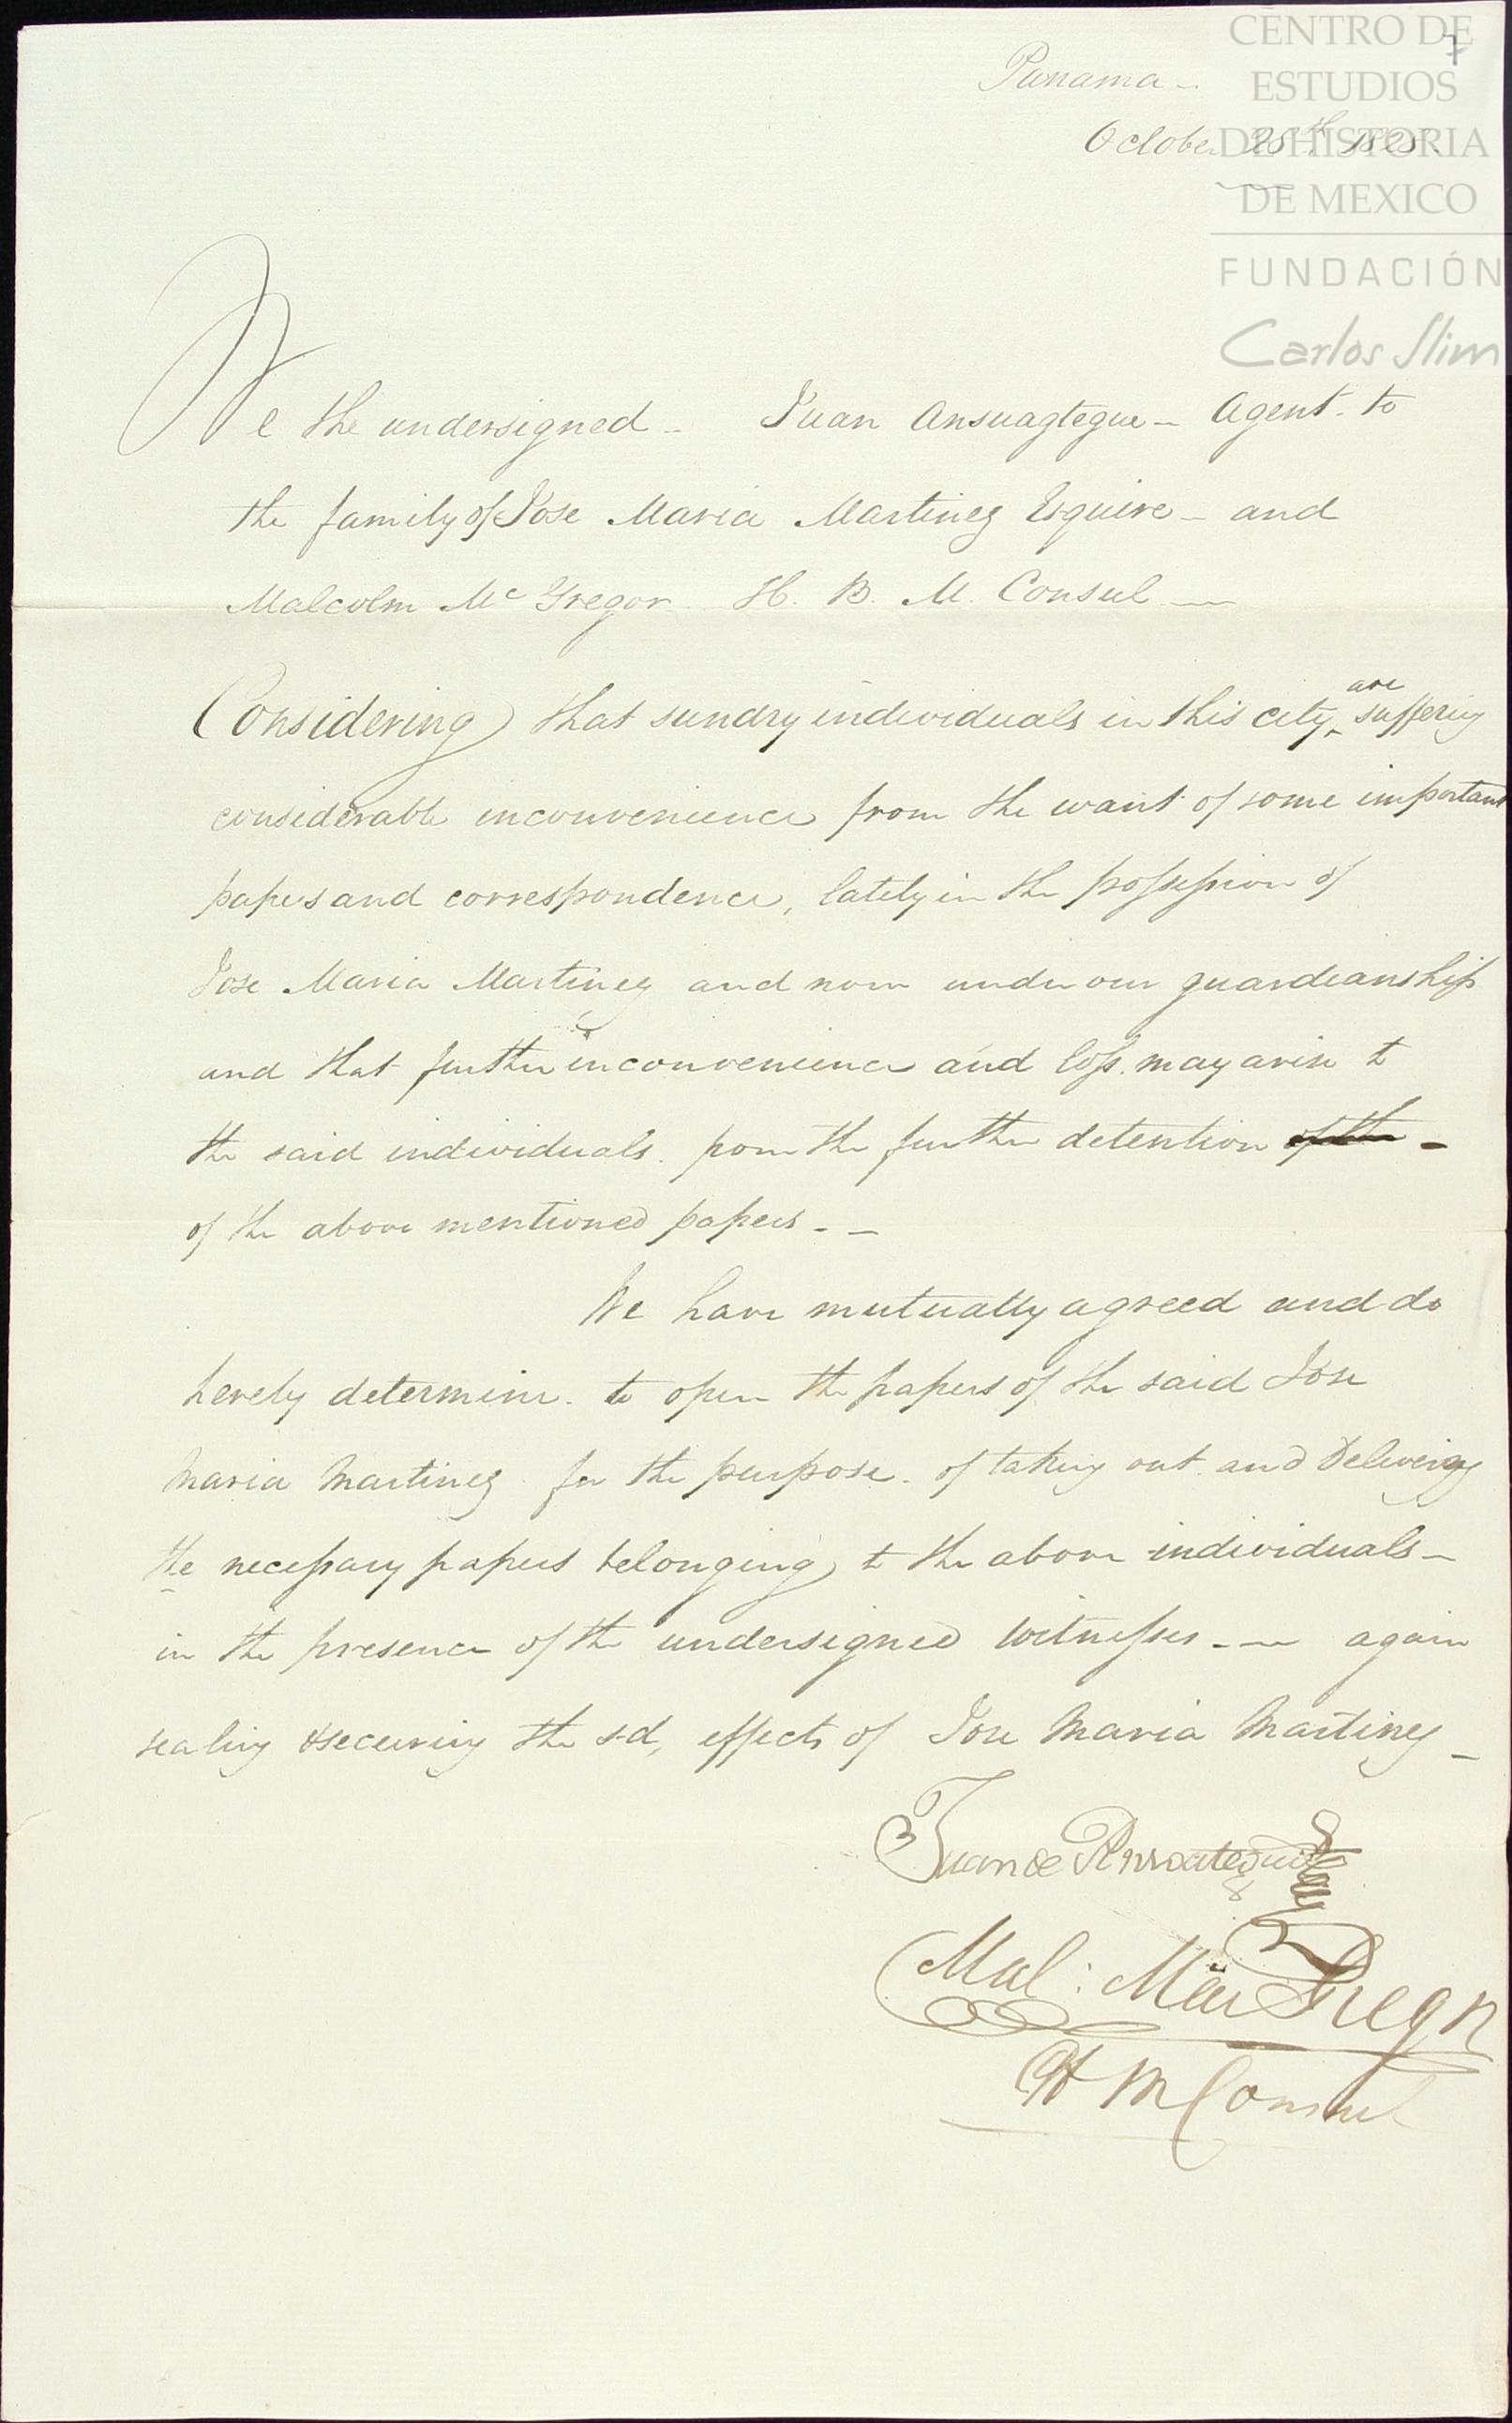 CENTRO DE
ESTUDIOS
DE HISTORIA
DE MEXICO
FUNDACIÓN
Carlos Slim
7
Panama -
October 25th 1825.
We the undersigned - Juan Ansuagtegue - Agent to
the family of Jose Maria Martinez Esquire - and
Malcolm Mc Gregor H. B. M. Consul
Considering that sundry individuals in this city are suffering
considerable inconvenience from the want of some important
papers and correspondence, lately in the possession of
Jose Maria Martinez and now under our guardeanship
and that further inconvenience and loss. may arise to
the said individuals. from the further detention of the -
of the above mentioned papers - -
We have mutually agreed and do
hereby determine. to open the papers of the said Jose
Maria Martinez for the purpose. of taking out and Delivering
the necessary papers belonging to the above individuals -
in the presence of the undersigned witnesses - - again
sealing & securing the sd, effects of Jose Maria Martinez -
Juan de
Mal: MacGregor
H M Consul